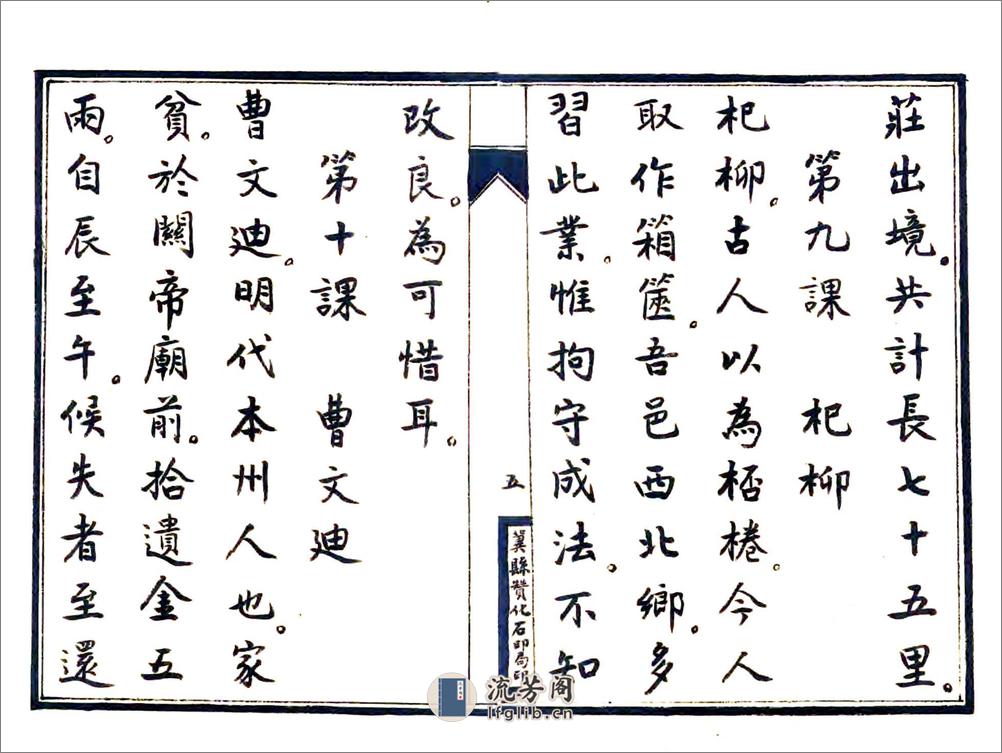 莊出境。共計長七十五里。
第九課　杞柳
杞柳。古人以為桮棬。今人
取作箱篋。吾邑西北鄉。多
習此業。惟拘守成法。不知
五
冀縣贊化石印局印
改良。為可惜耳。
第十課　曹文迪
曹文迪。明代本州人也。家
貧。於關帝廟前。拾遺金五
兩。自辰至午。候失者至還
流芳阁
lfglib.cn